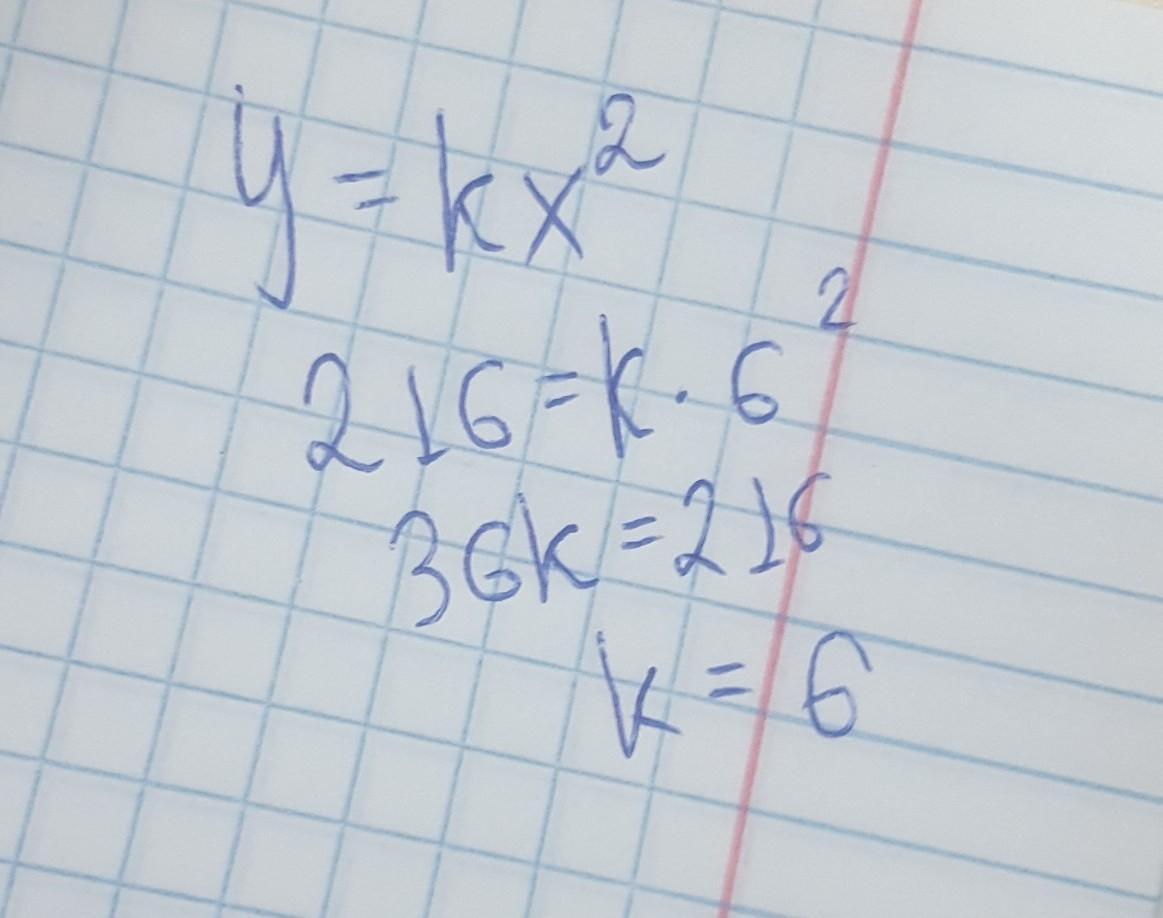 y = kx²
216 = k · 6²
36k = 216
k = 6